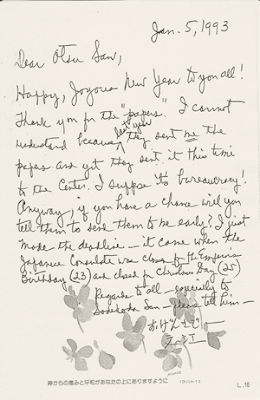 Jan. 5, 1993
Dear Otsu San,
Happy, Joyous New Year to you all!
Thank you for the "papers". I cannot
last year
understand because they sent me the
papers and yet they sent it this time
to the Center. I suppose it's bureaucracy!
Anyway, if you have a chance will you
tell them to send them to be early? I just
made the deadline — it came when the
Japanese Consulate was closed for the Emperor's
Birthday (23) and closed for Christmas Day (25)
Regards to all — especially to
San — please tell him —
神からの恵みと平和があなたの上にありますように
L.16